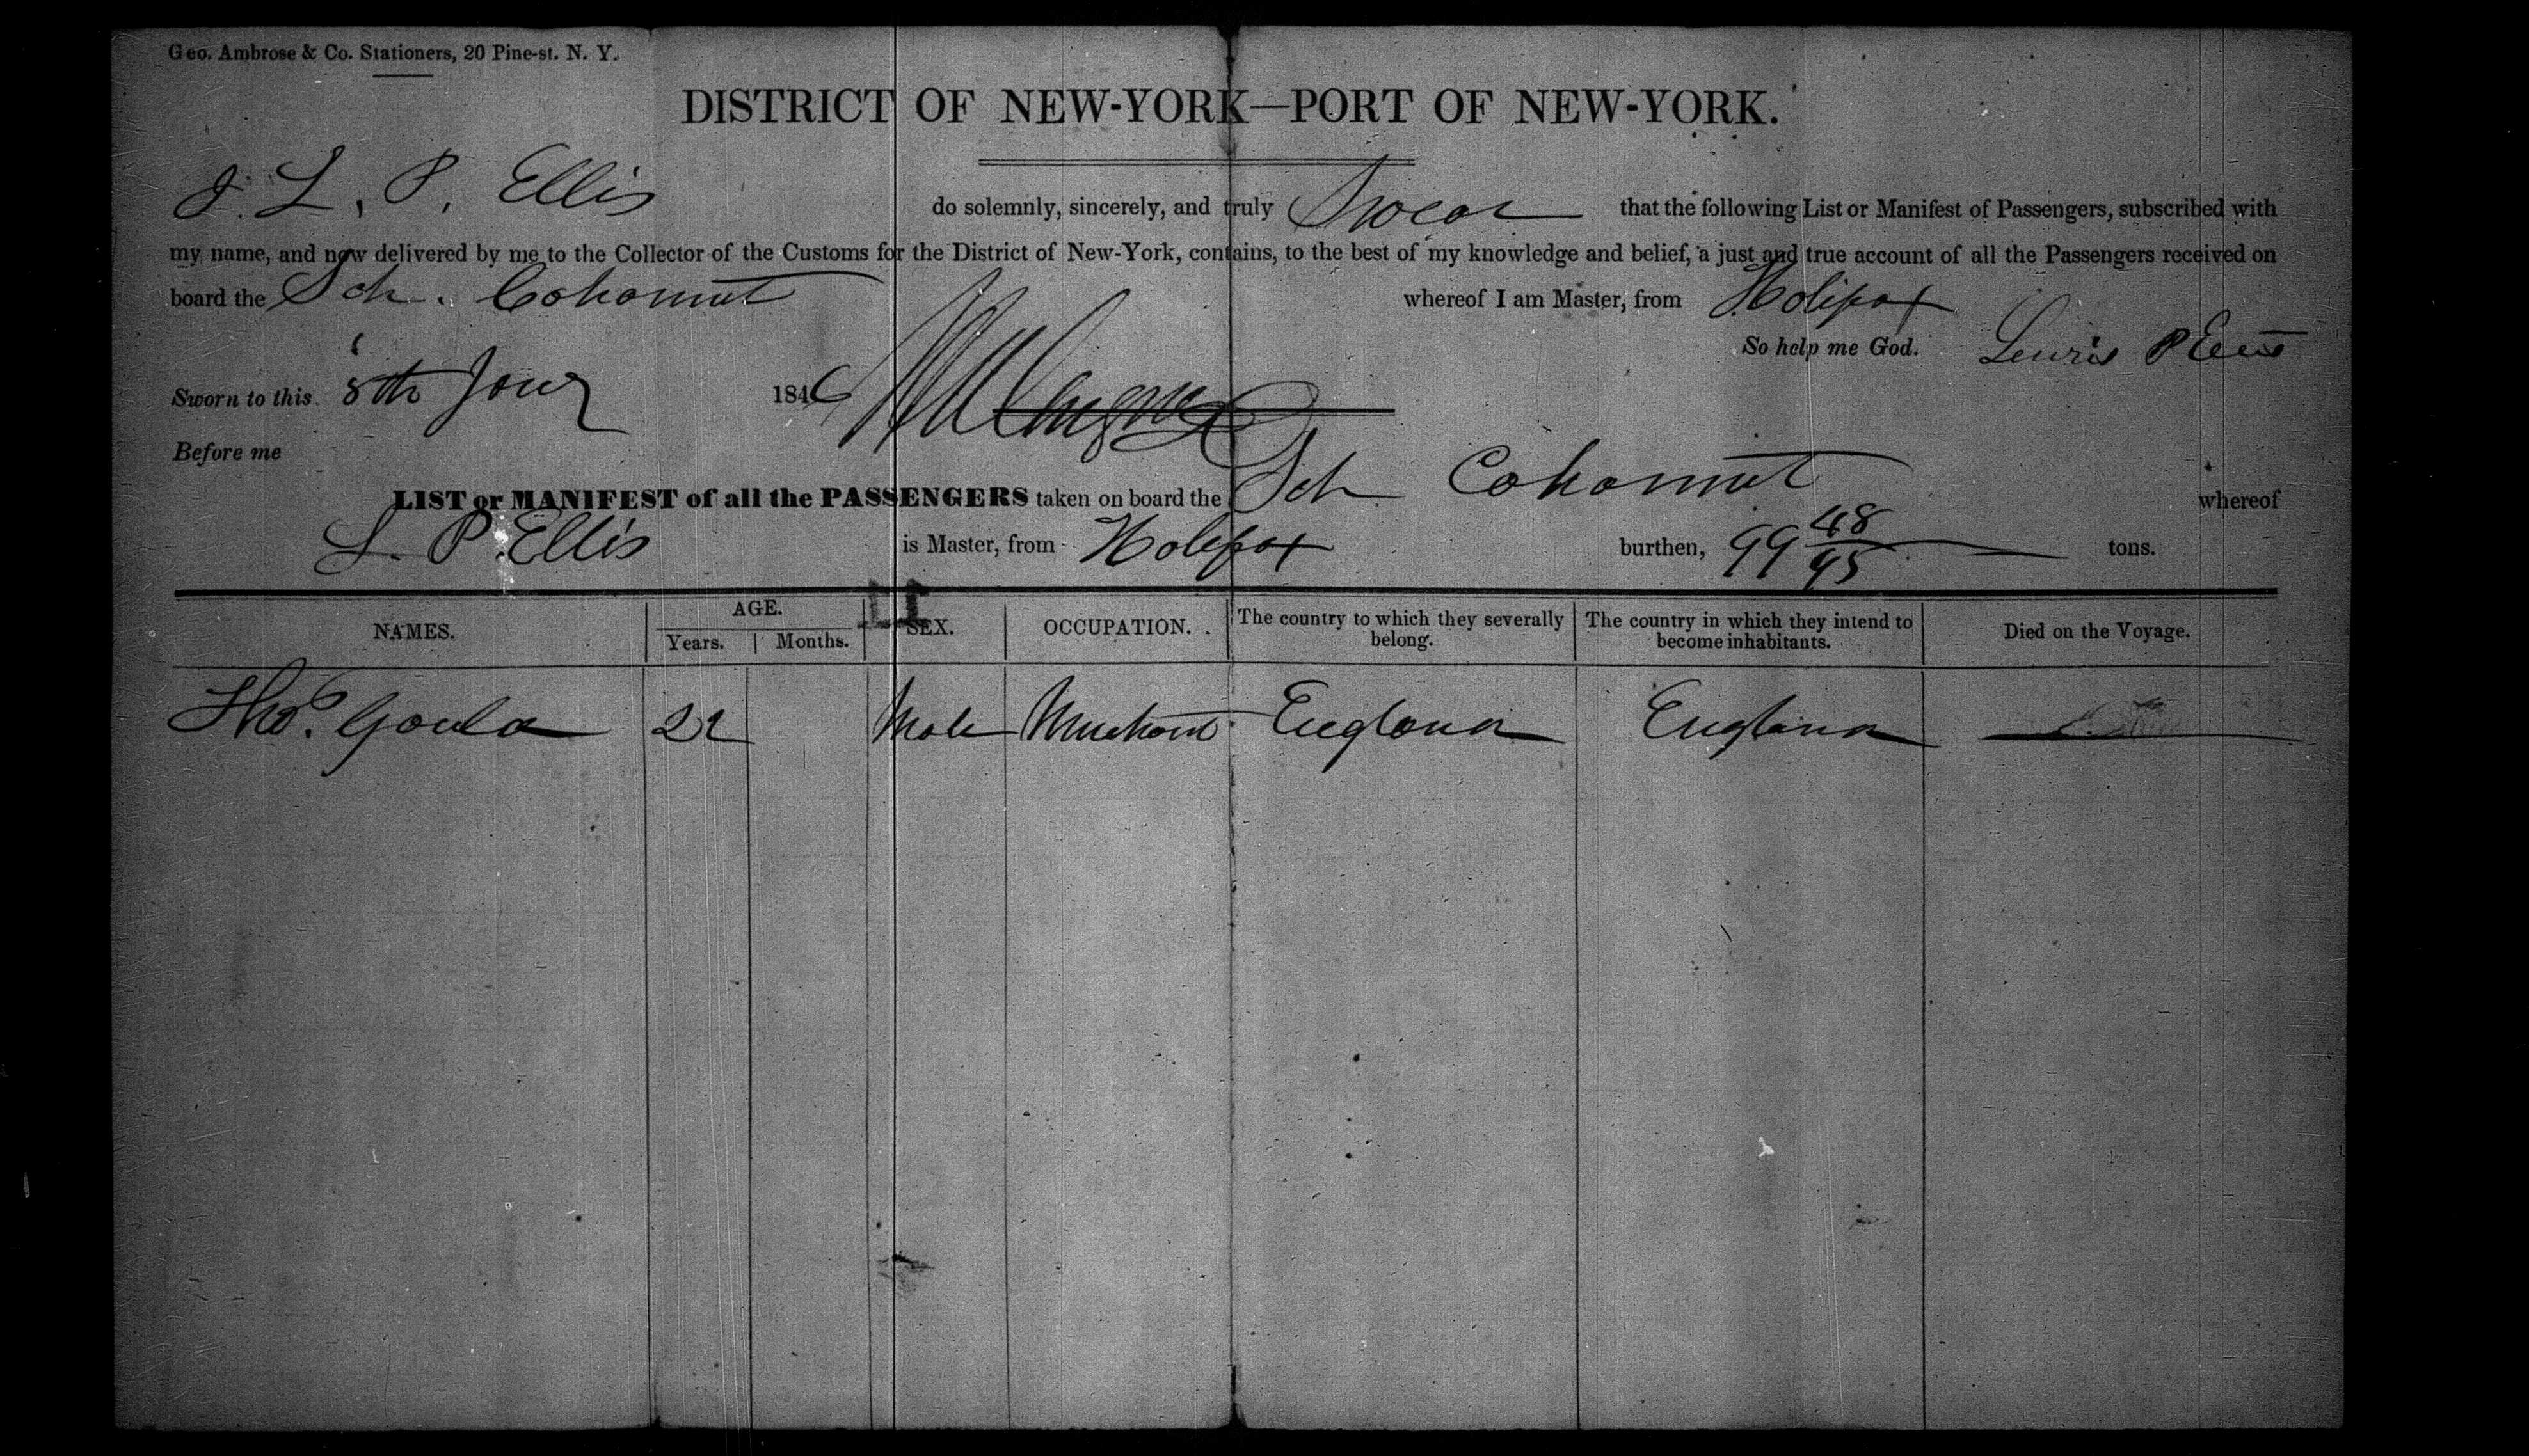 Geo. Ambrose & Co. Stationers, 20 Pine-st. N. Y.
DISTRICT OF NEW-YORK—PORT OF NEW-YORK.
I. L. P. Ellis do solemnly, sincerely, and truly Swear that the following List or Manifest of Passengers, subscribed with
my name, and now delivered by me to the Collector of the Customs for the District of New-York, contains, to the best of my knowledge and belief, a just and true account of all the Passengers received on
board the Sch. Cohannet whereof I am Master, from Halifax
So help me God. Lewis P Ellis
Sworn to this 8th Jany 1846
Before me
LIST or MANIFEST of all the PASSENGERS taken on board the Sch Cohannet whereof
L. P. Ellis is Master, from Halifax burthen, 99 48/95 tons.
NAMES. AGE. Years. Months. SEX. OCCUPATION. The country to which they severally belong. The country in which they intend to become inhabitants. Died on the Voyage.
Thos. Gould 22 Male Merchant England England